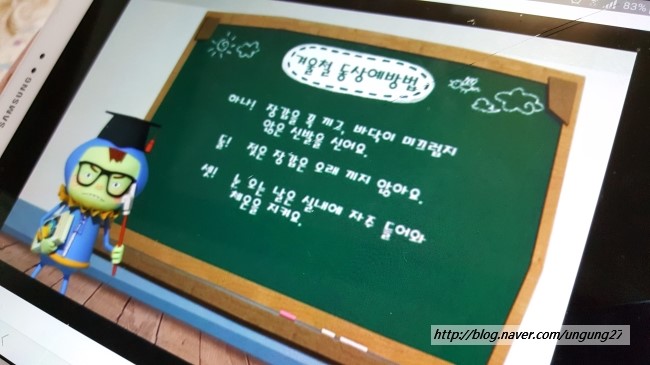 SAMSUNG
83%
겨울철 동상예방법
하나! 장갑을 꼭 끼고, 바닥이 미끄럽지
않은 신발을 신어요.
둘! 젖은 장갑은 오래 끼지 않아요.
셋! 눈 오는 날은 실내에 자주 들어와
체온을 지켜요.
http://blog.naver.com/ungung27